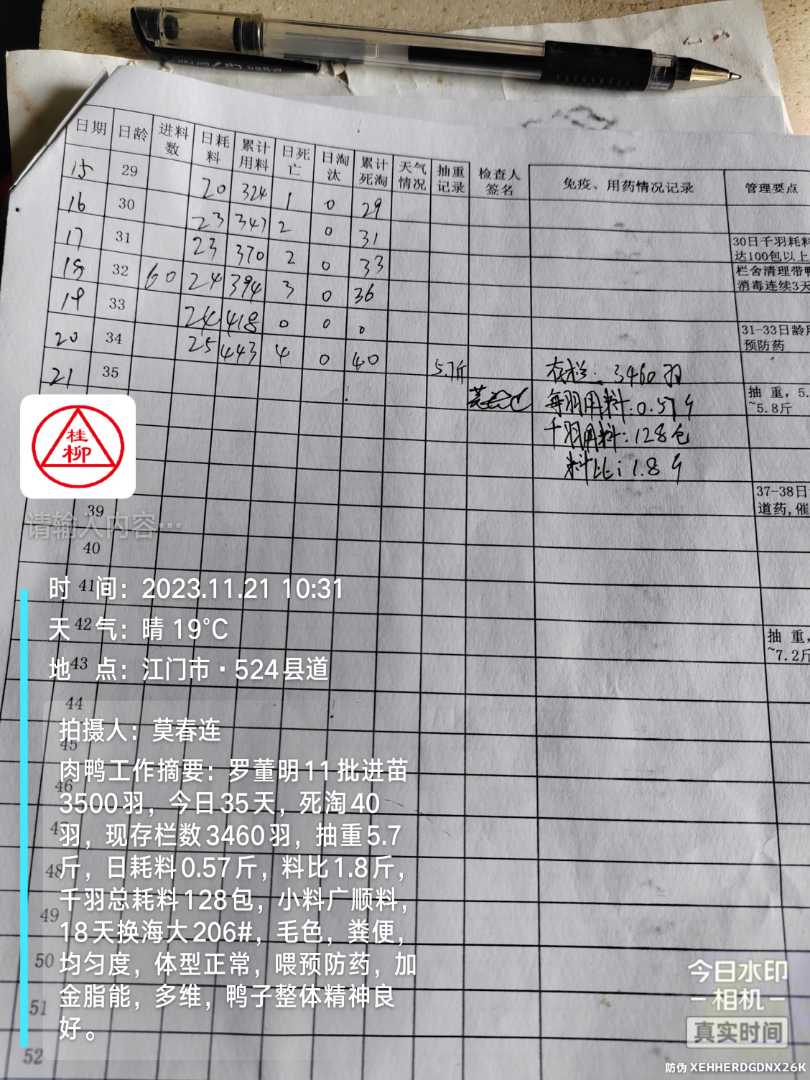 日期 日龄 进料数 日耗料 累计用料 日死亡 日淘汰 累计死淘 天气情况 抽重记录 检查人签名 免疫、用药情况记录 管理要点
15 29 20 324 1 0 29
16 30 23 347 2 0 31
17 31 23 370 2 0 33
30日千羽耗料
达100包以上
18 32 60 24 394 3 0 36
栏舍清理带鸭
消毒连续3天
19 33 24 418 0 0 0
20 34 25 443 4 0 40
31-33日龄用
预防药
21 35 5.7斤 存栏:3460羽
每羽用料:0.57斤
抽 重,5.
~5.8斤
千羽用料:128包
料比:1.8斤
桂柳
37-38日
道药,催
请输入内容…
39
40
41
时 间:2023.11.21 10:31
42
天 气:晴 19℃
抽 重,
~7.2斤
43
地 点:江门市·524县道
44
拍摄人:莫春连
45
肉鸭工作摘要:罗董明11批进苗
46
3500羽,今日35天,死淘40
47
羽,现存栏数3460羽,抽重5.7
斤,日耗料0.57斤,料比1.8斤,
48
千羽总耗料128包,小料广顺料,
49
18天换海大206#,毛色,粪便,
50
均匀度,体型正常,喂预防药,加
51
金脂能,多维,鸭子整体精神良
好。
52
今日水印
相机
真实时间
防伪 XEHHERDGDNX26K